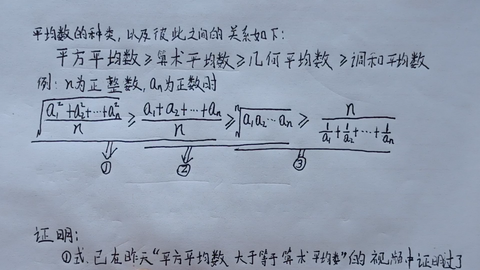 平均数的种类,以及彼此之间的关系如下:
平方平均数≥算术平均数≥几何平均数≥调和平均数
例: n为正整数, aₙ为正数时
√((a₁²+a₂²+…+aₙ²)/n) ≥ (a₁+a₂+…+aₙ)/n ≥ ⁿ√(a₁a₂…aₙ) ≥ n/(1/a₁+1/a₂+…+1/aₙ)
① ② ③
证明:
①式.已在昨天“平方平均数 大于等于 算术平均数”的 视频中证明过了